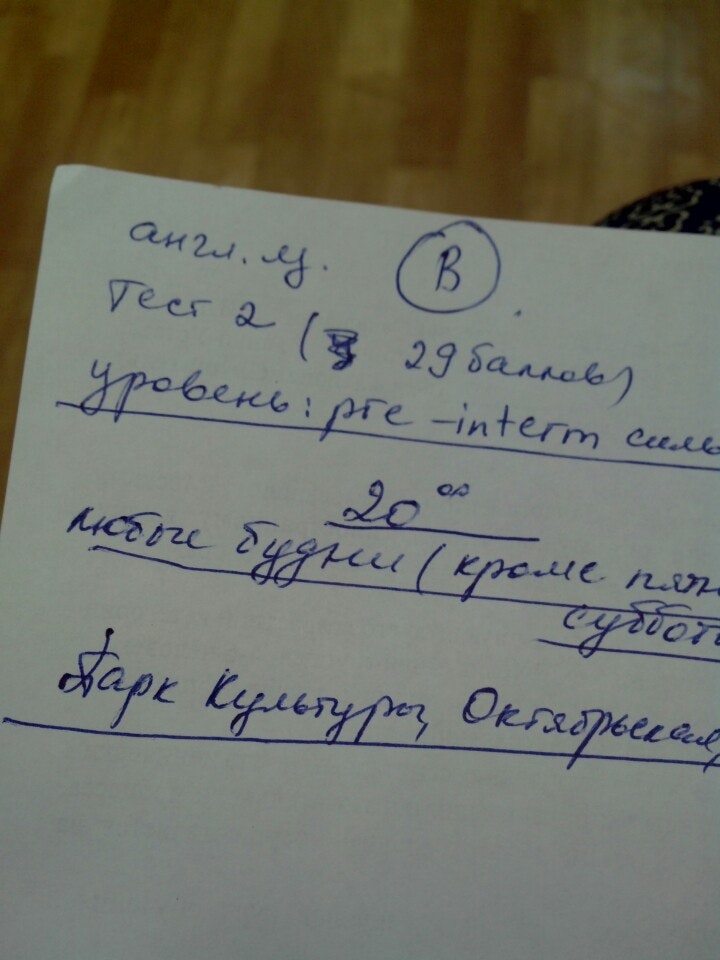 англ. яз. В
Тест 2 ( 29 баллов)
уровень: pre-interm силь
20 00
любые будни (кроме пятн
суббот
Парк Культуры, Октябрьская,